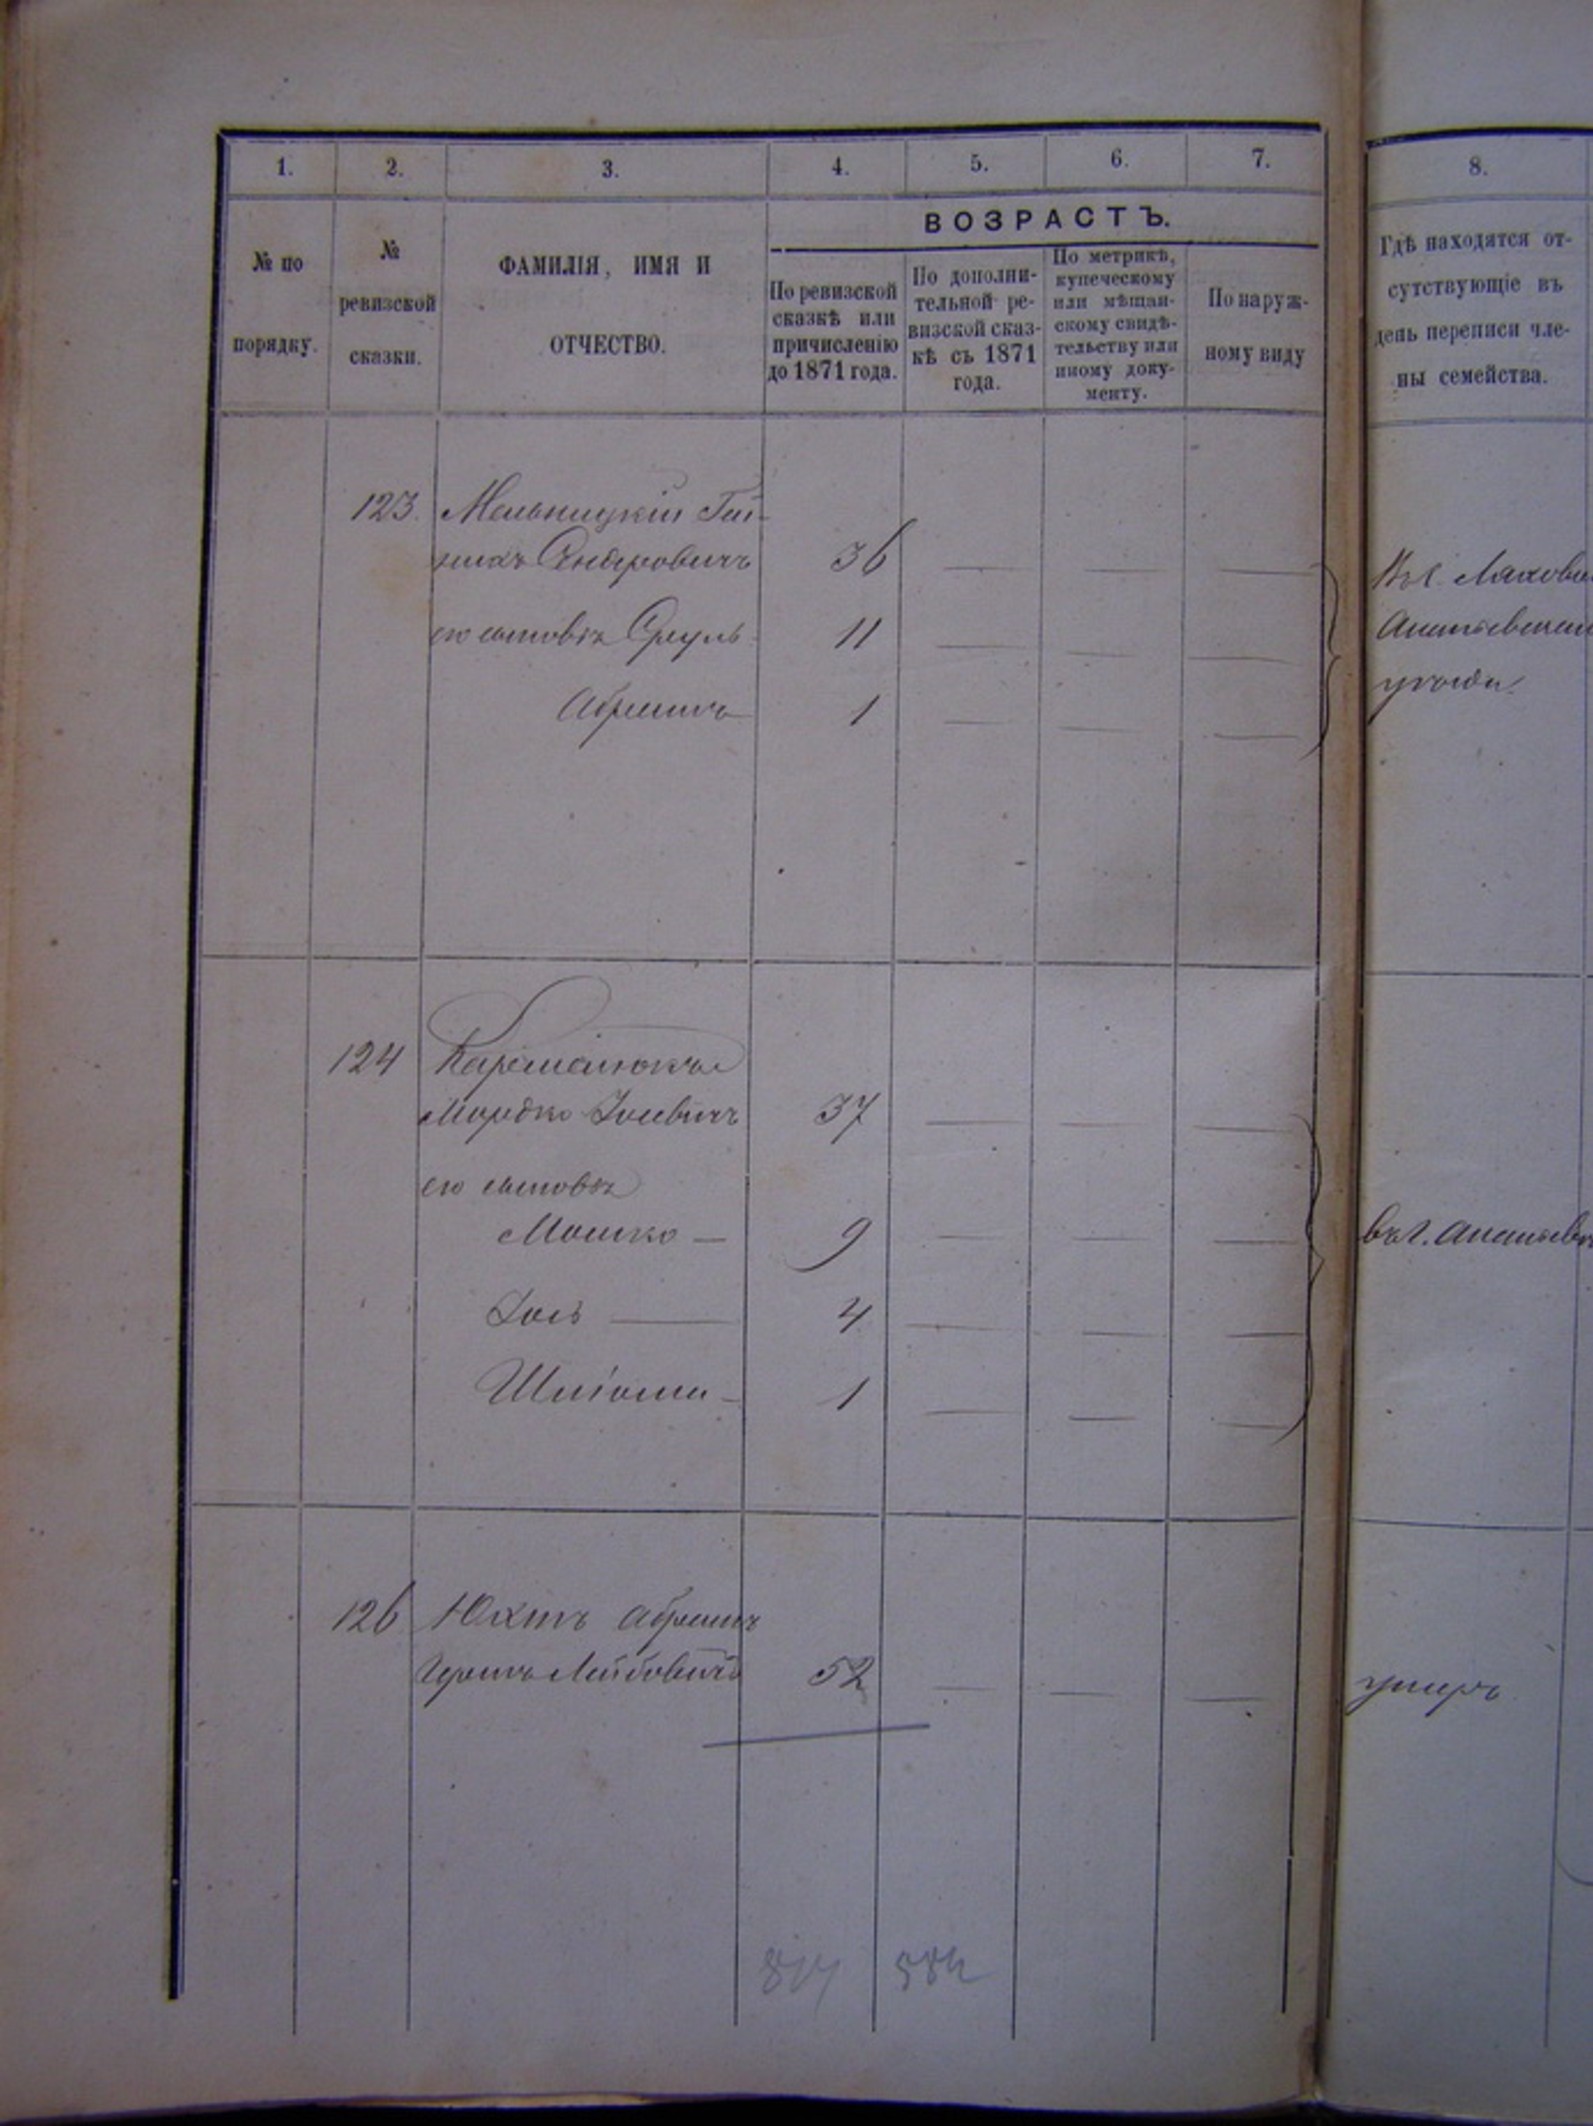 1. 2. 3. 4. 5. 6. 7. 8.
ВОЗРАСТЪ.
№ по
порядку.
№
ревизской
сказки.
ФАМИЛІЯ, ИМЯ И
ОТЧЕСТВО.
По ревизской
сказкѣ или
причисленію
до 1871 года.
По дополни-
тельной ре-
визской сказ-
кѣ съ 1871
года.
По метрикѣ,
купеческому
или мѣщан-
скому свидѣ-
тельству или
иному доку-
менту.
По наруж-
ному виду
Гдѣ находятся от-
сутствующіе въ
день переписи чле-
ны семейства.
123. Мельницкій
Сендеровичъ 36
его сыновья Сруль 11
Абрамъ 1
уѣзда
124
Мордко Іосевичъ 37
его сыновья
Мошко — 9
Іось — 4
Шліома — 1
въ г. Ананьев
126 Юхтъ Абрамъ
Гершъ Лейбовичъ 52
умеръ